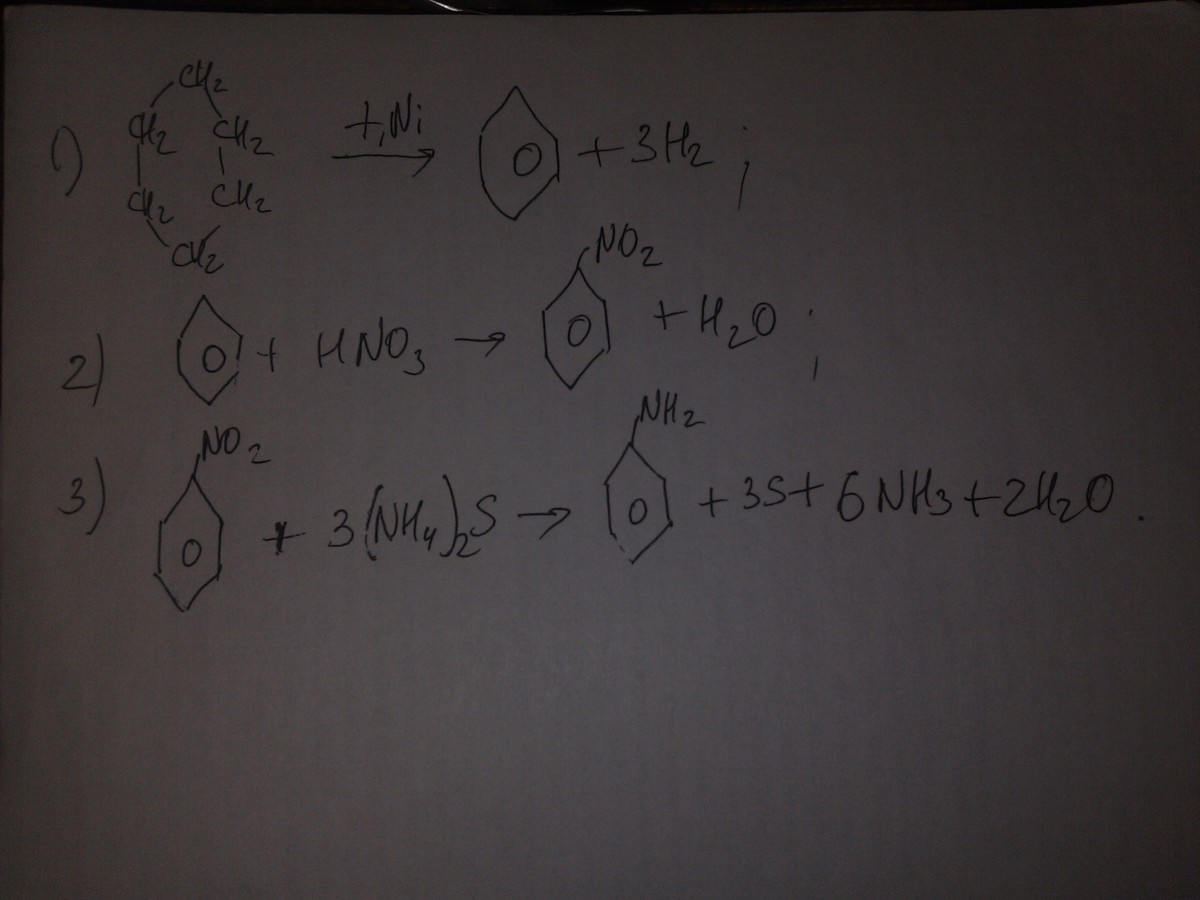 1) CH2 CH2 CH2 CH2 CH2 CH2 t,Ni → + 3H2 ;
2) + HNO3 → NO2 + H2O ;
3) NO2 + 3(NH4)2S → NH2 + 3S + 6NH3 + 2H2O .